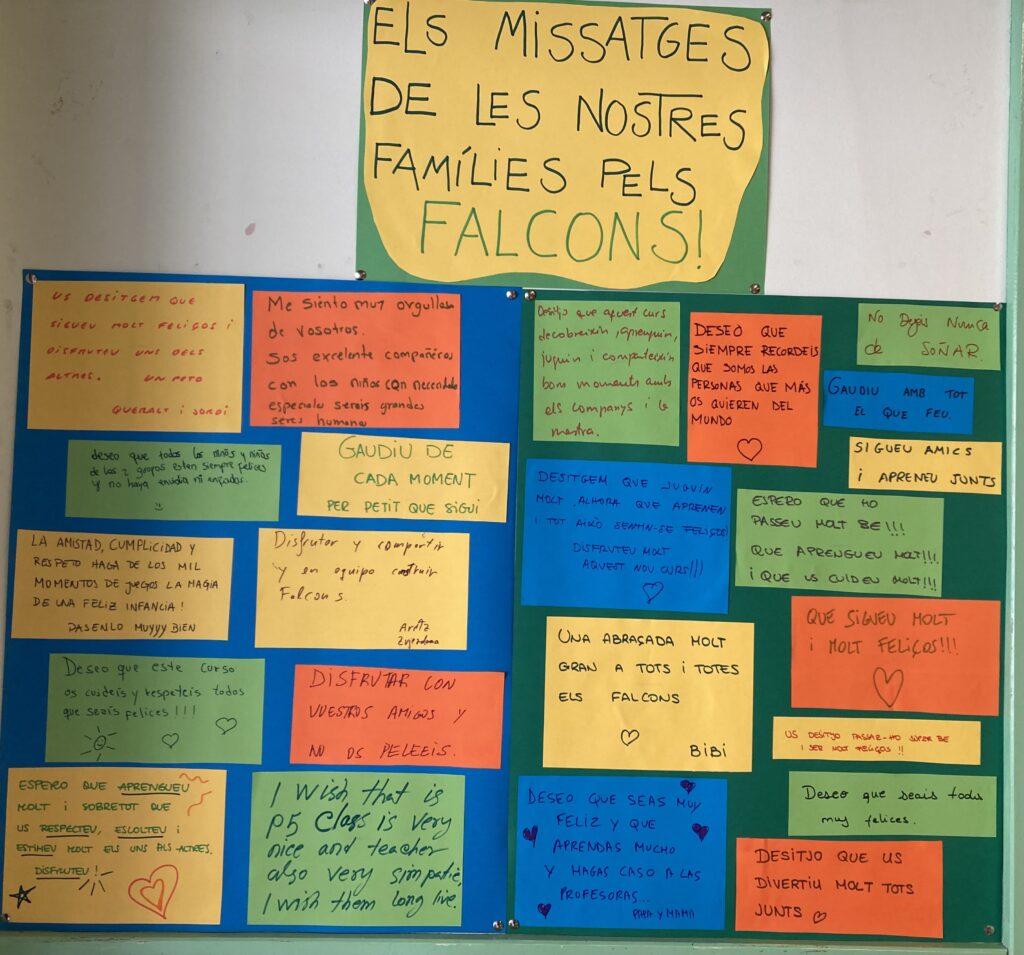 ELS MISSATGES
DE LES NOSTRES
FAMÍLIES PELS
FALCONS!
US DESITGEM QUE
SIGUEU MOLT FELIÇOS I
DISFRUTEU UNS DELS
ALTRES. UN PETO
QUERALT i JORDI
Me siento muy orgullosa
de vosotros.
Sos excelente compañeros
con los niños con necesidade
especiale serais grandes
seres humano
deseo que todos los niños y niñas
de los 2 grupos esten siempre felices
y no haya envidia ni enfados.
GAUDIU DE
CADA MOMENT
PER PETIT QUE SIGUI
LA AMISTAD, CUMPLICIDAD Y
RESPETO HAGA DE LOS MIL
MOMENTOS DE JUEGOS LA MAGIA
DE UNA FELIZ INFANCIA!
PASENLO MUYYY BIEN
Disfrutar y compartir
y en equipo construir
Falcons.
Deseo que este curso
os cuideis y respeteis todos
que seais felices!!!
DISFRUTAR CON
VUESTROS AMIGOS Y
NO OS PELEEIS.
ESPERO QUE APRENGUEU
MOLT I SOBRETOT QUE
US RESPECTEU, ESCOLTEU I
ESTIMEU MOLT ELS UNS ALS ALTRES.
DISFRUTEU!
I wish that is
P5 Class is very
nice and teacher
also very simpatie,
I wish them long live.
Desitjo que aquest curs
decobreixin, aprenguin,
juguin i comparteixin
bons moments amb
els companys i la
mestra.
DESEO QUE
SIEMPRE RECORDEIS
QUE SOMOS LAS
PERSONAS QUE MÁS
OS QUIEREN DEL
MUNDO
No Dejeis Nunca
de SOÑAR.
GAUDIU AMB TOT
EL QUE FEU.
SIGUEU AMICS
I APRENEU JUNTS
DESITGEM QUE JUGUIN
MOLT, ALHORA QUE APRENEN
I TOT AIXÒ SENTIN-SE FELIÇOS!
DISFRUTEU MOLT
AQUEST NOU CURS!!!
ESPERO QUE HO
PASSEU MOLT BE!!!
QUE APRENGUEU MOLT!!!
I QUE US CUIDEU MOLT!!!
UNA ABRAÇADA MOLT
GRAN A TOTS I TOTES
ELS FALCONS
BIBI
QUE SIGUEU MOLT
I MOLT FELIÇOS!!!
US DESITJO PASSAR-HO SUPER BE
I SER MOLT FELIÇOS!!
DESEO QUE SEAS MUY
FELIZ Y QUE
APRENDAS MUCHO
Y HAGAS CASO A LAS
PROFESORAS...
PAPA Y MAMA
Deseo que seais todos
muy felices.
DESITJO QUE US
DIVERTIU MOLT TOTS
JUNTS